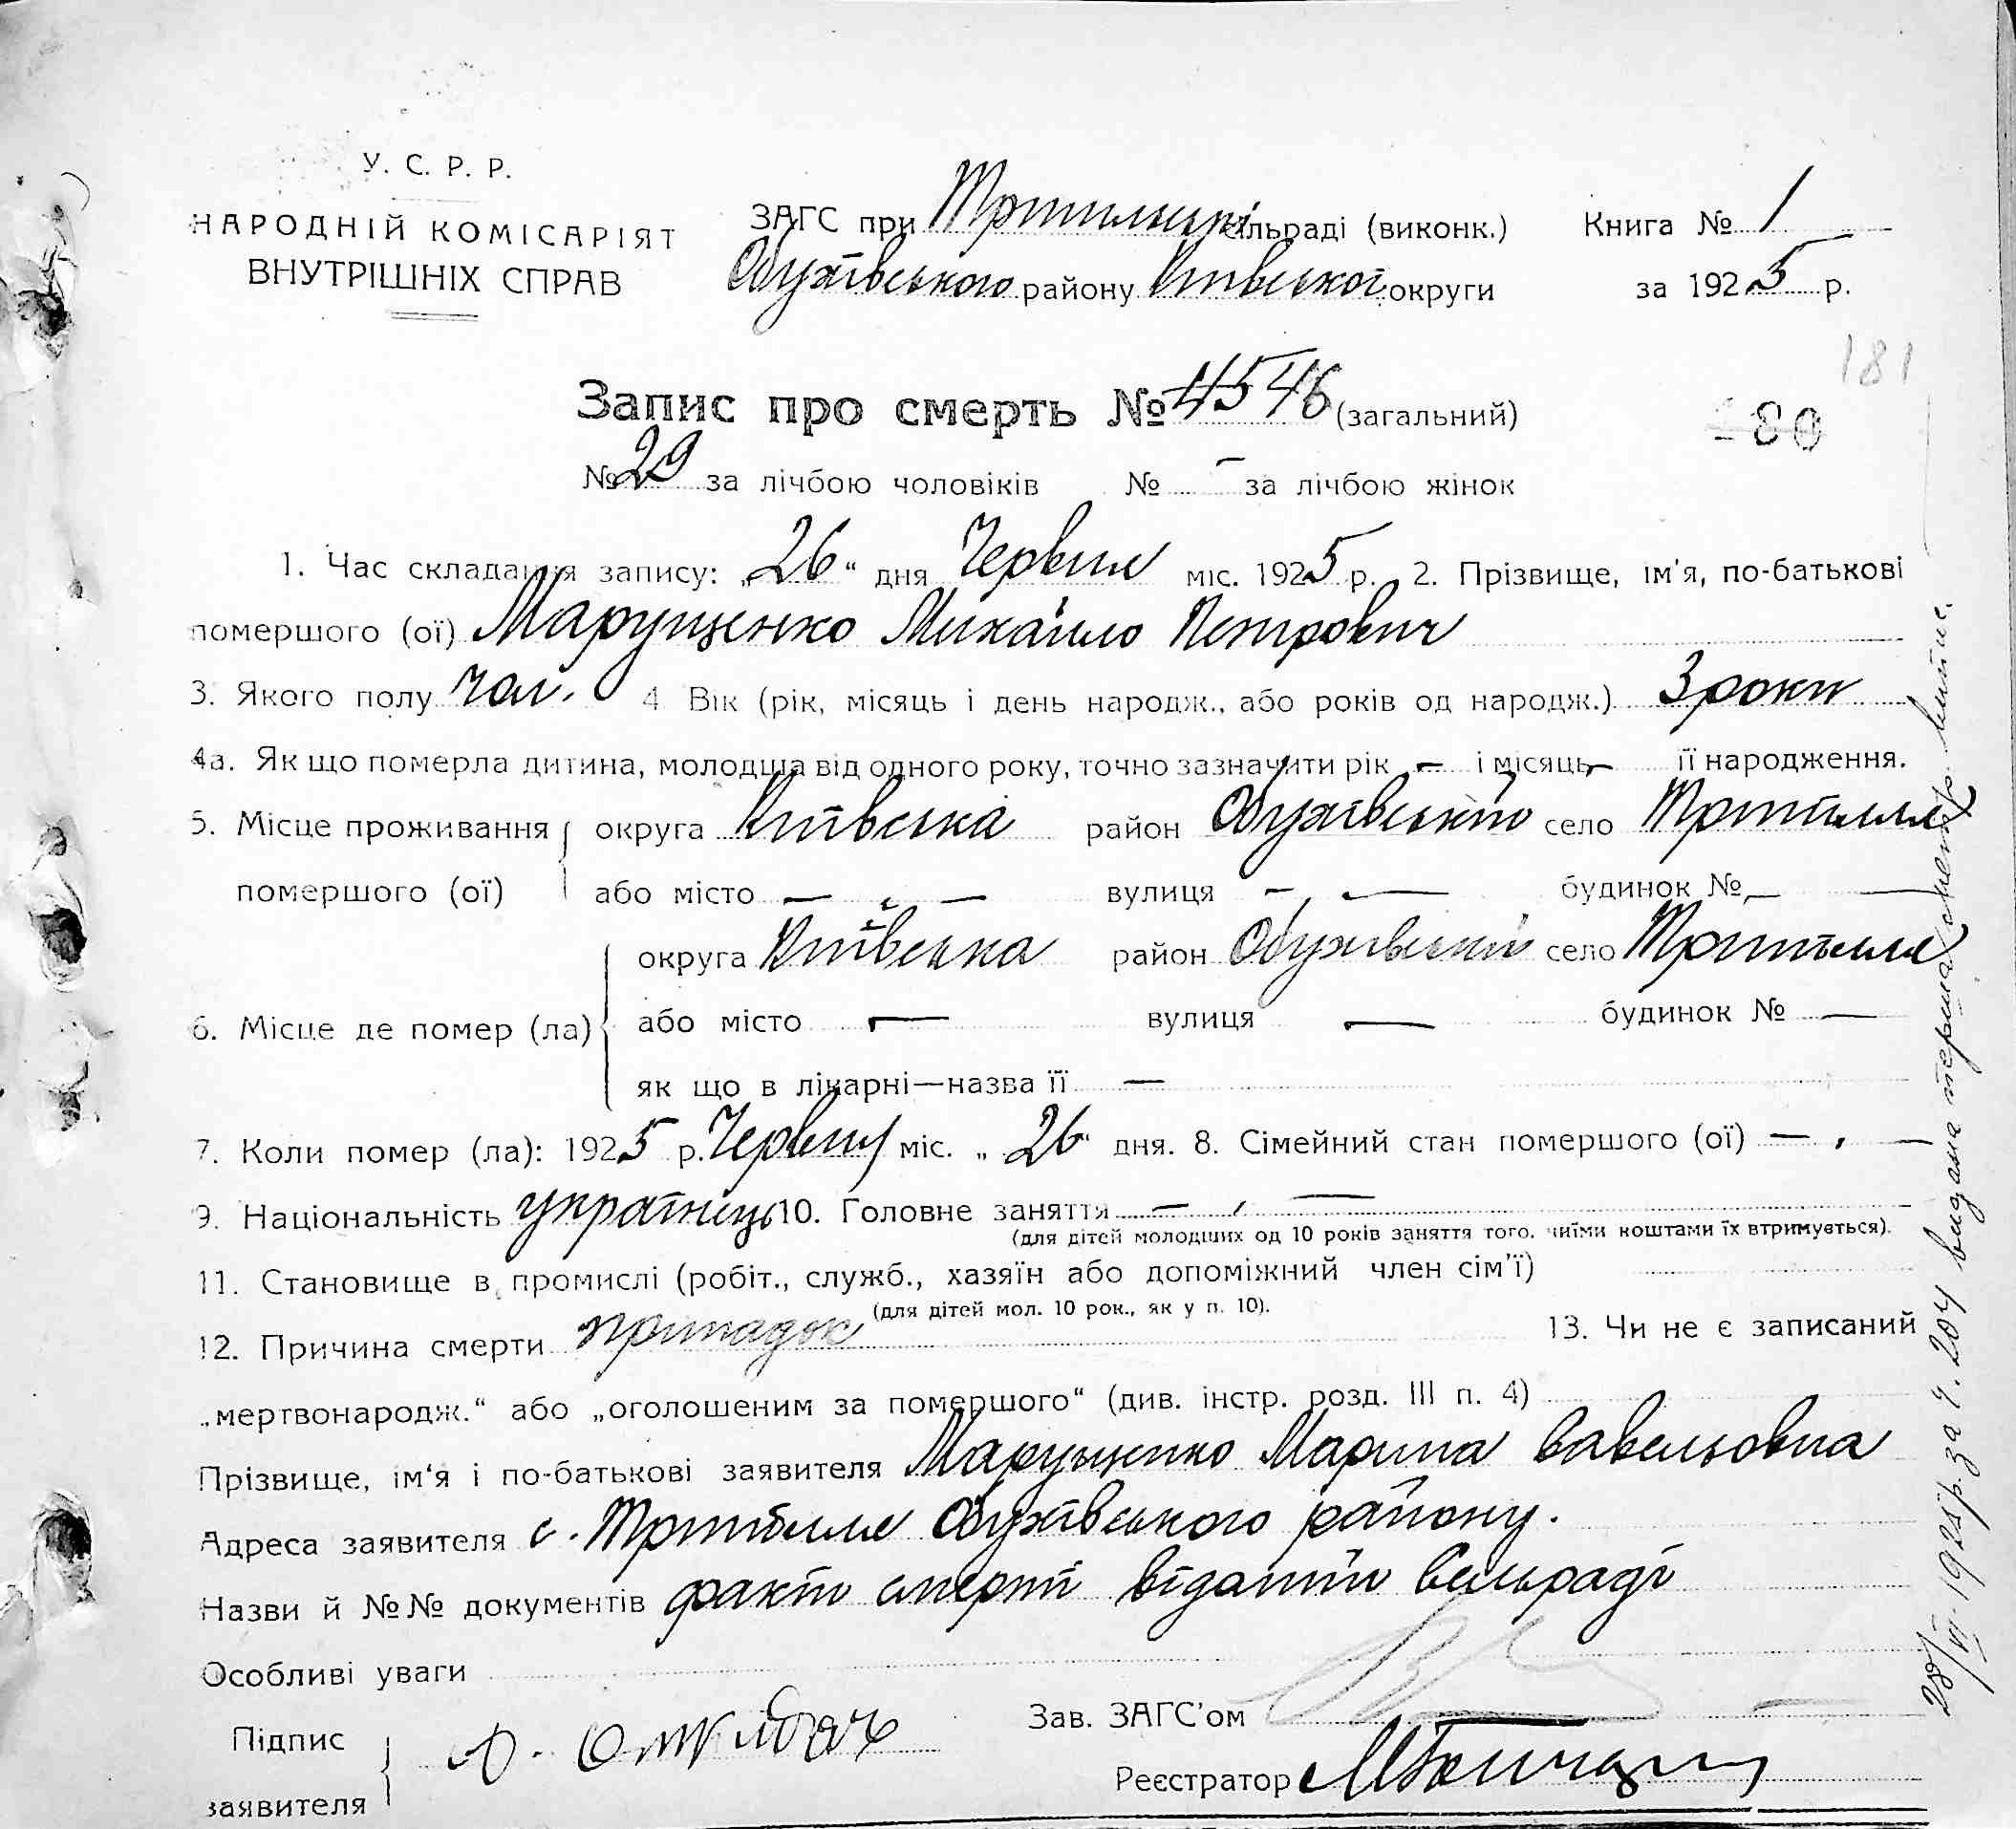 У. С. Р. Р.
НАРОДНІЙ КОМІСАРІЯТ
ВНУТРІШНІХ СПРАВ
ЗАГС при Трипильській сільраді (виконк.)
Обухівського району Київської округи
Книга № 1
за 1925 р.
181
80
Запис про смерть № (загальний)
№ 29 за лічбою чоловіків № — за лічбою жінок
1. Час складання запису: „26“ дня Червня міс. 1925 р. 2. Прізвище, ім'я, по-батькові
помершого (ої) Марущенко Михайло Петрович
3. Якого полу чол. 4 Вік (рік, місяць і день народж., або років од народж.) 3 роки
4а. Як що померла дитина, молодша від одного року, точно зазначити рік — і місяць — її народження.
5. Місце проживання округа Київська район Обухівський село Трипілля
помершого (ої) або місто — вулиця — будинок № —
округа Київська район Обухівський село Трипілля
6. Місце де помер (ла) або місто — вулиця — будинок № —
як що в лікарні—назва її —
7. Коли помер (ла): 1925 р. Червня міс. „26“ дня. 8. Сімейний стан помершого (ої) —
9. Національність українець 10. Головне заняття —
(для дітей молодших од 10 років заняття того, чиїми коштами їх втримується).
11. Становище в промислі (робіт., служб., хазяїн або допоміжний член сім'ї)
(для дітей мол. 10 рок., як у п. 10).
12. Причина смерти припадок 13. Чи не є записаний
„мертвонародж.“ або „оголошеним за помершого“ (див. інстр. розд. III п. 4)
Прізвище, ім'я і по-батькові заявителя Марущенко Марина Савельовна
Адреса заявителя с. Трипілля Обухівського району.
Назви й №№ документів факт смерти відомий Сельраді
Особливі уваги
Підпис
заявителя
Зав. ЗАГС'ом
Реєстратор
28/VI-1925р. за ч. 204 видана перша смерт. випис.